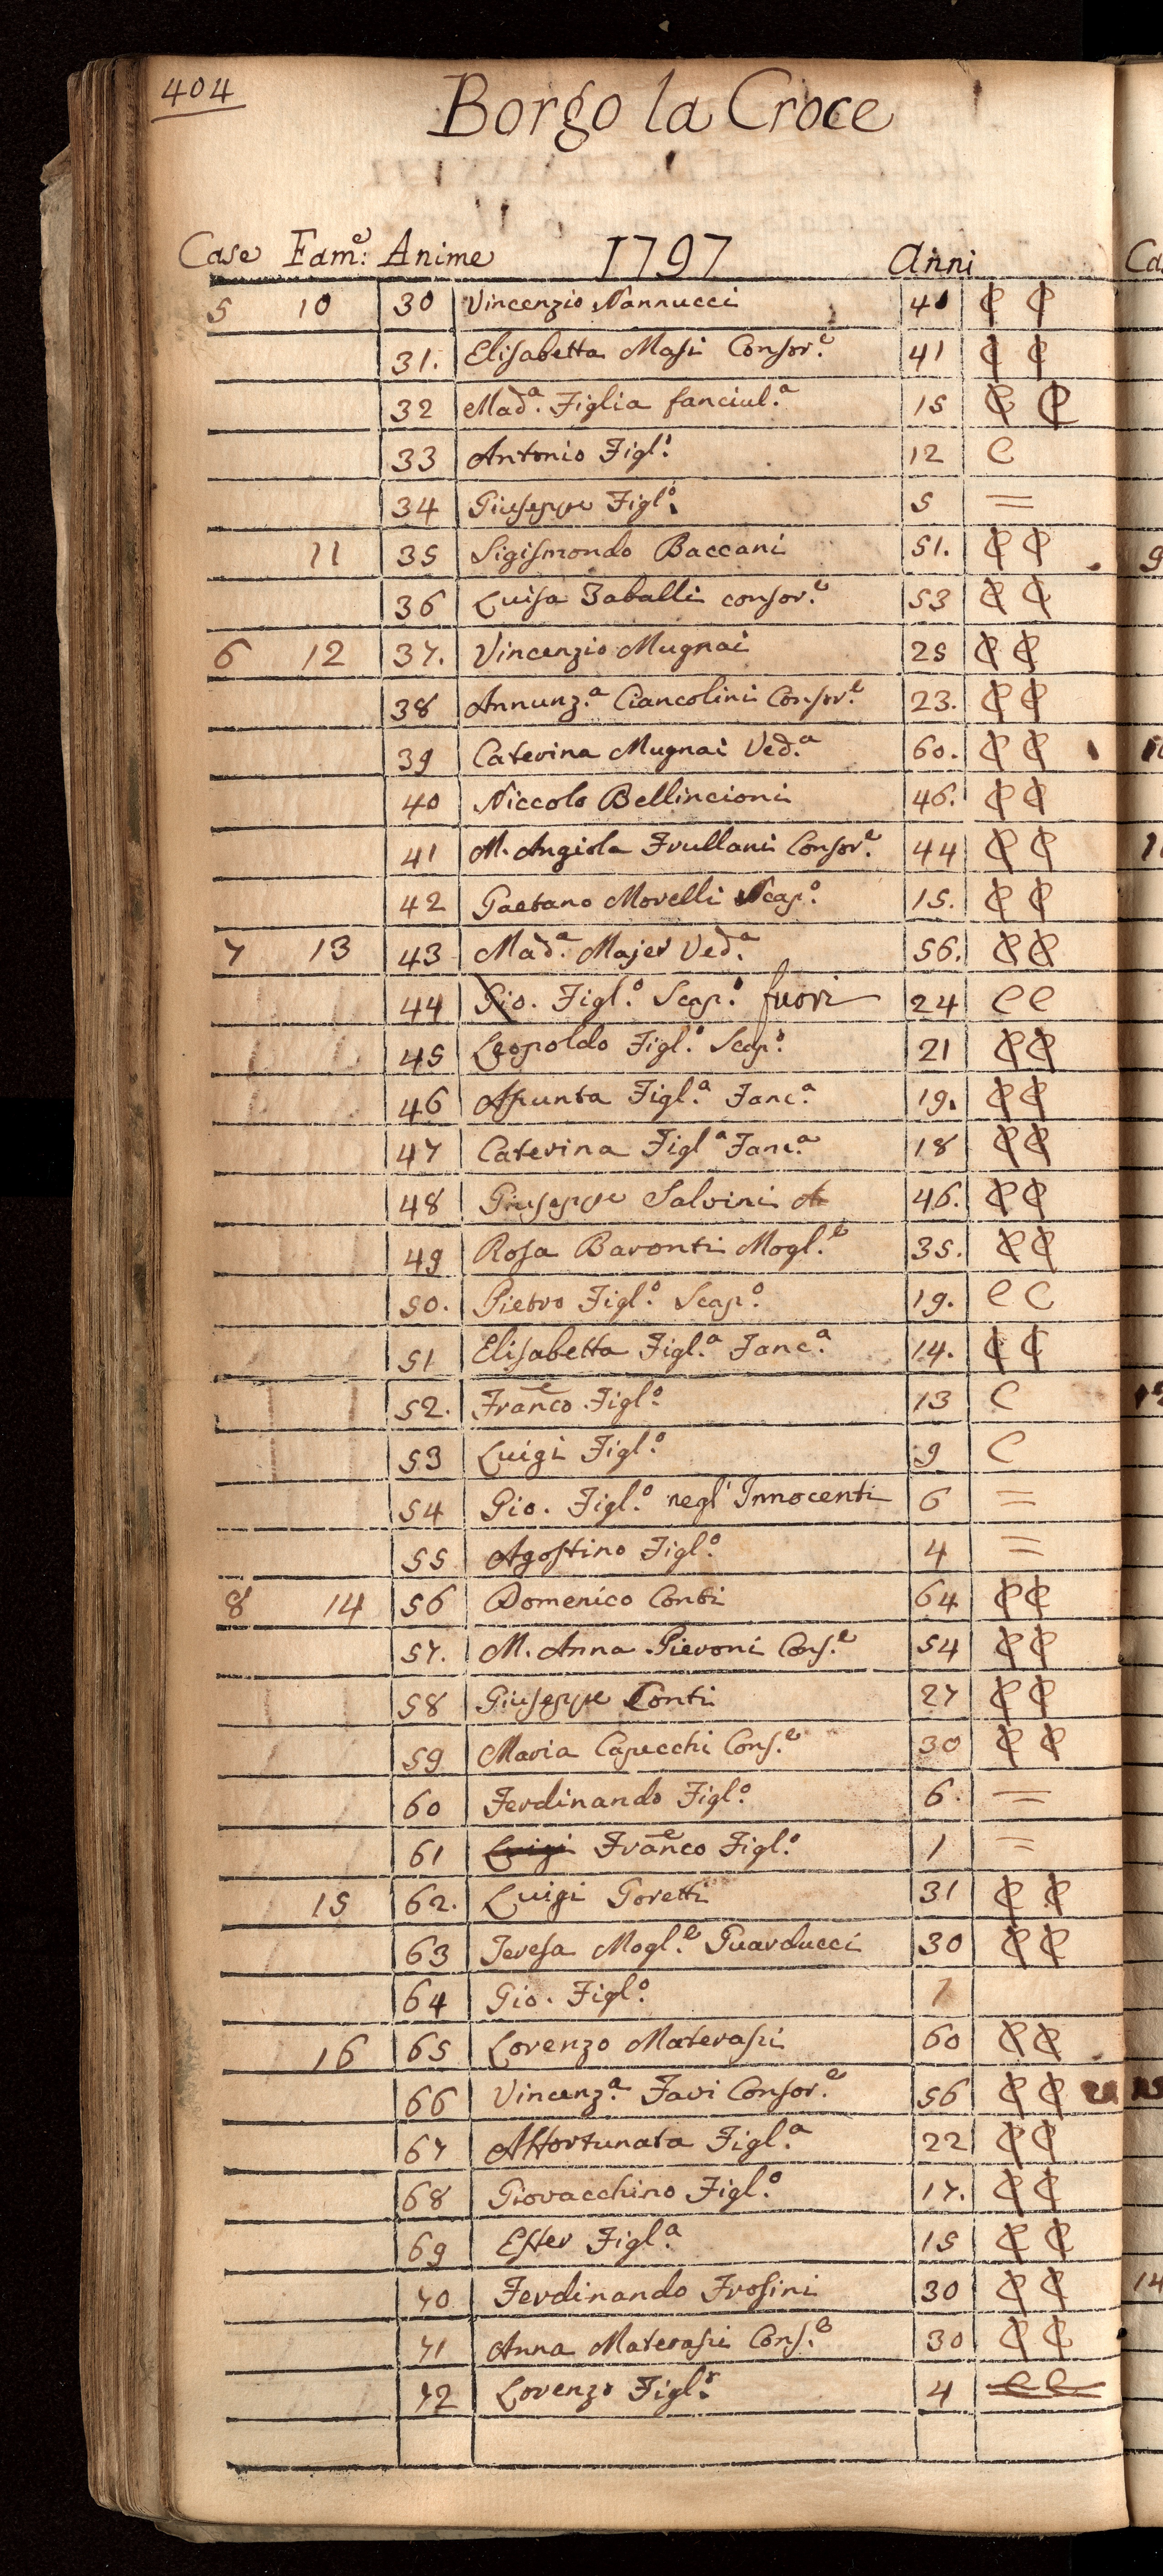 404
Borgo la Croce
Case Fam.e: Anime 1797 Anni
5 10 30 Vincenzio Nannucci 40 C C
31. Elisabetta Masi Consor.e 41 C C
32 Mad.a Figlia fanciul.a 15 C C
33 Antonio Figl.o 12 C
34 Giuseppe Figl.o 5 =
11 35 Sigismondo Baccani 51. C C
36 Luisa Zaballi consor.e 53 C C
6 12 37. Vincenzio Mugnai 25 C C
38 Annunz.a Ciancolini Consor.e 23. C C
39 Caterina Mugnai Ved.a 60. C C
40 Niccolo Bellincioni 46. C C
41 M. Angiola Frullani Consor.e 44 C C
42 Gaetano Morelli Scap.o 15. C C
7 13 43 Mad.a Majer Ved.a 56. C C
44 Gio. Figl.o Scap.o fuori 24 C C
45 Leopoldo Figl.o Scap.o 21 C C
46 Assunta Figl.a Fanc.a 19. C C
47 Caterina Figl.a Fanc.a 18 C C
48 Giuseppe Salvini 46. C C
49 Rosa Baronti Mogl.e 35. C C
50. Pietro Figl.o Scap.o 19. C C
51 Elisabetta Figl.a Fanc.a 14. C C
52. Franco Figl.o 13 C
53 Luigi Figl.o 9 C
54 Gio. Figl.o negl' Innocenti 6 =
55 Agostino Figl.o 4 =
8 14 56 Domenico Conti 64 C C
57. M. Anna Pieroni Cons.e 54 C C
58 Giuseppe Conti 27 C C
59 Maria Capecchi Cons.e 30 C C
60 Ferdinando Figl.o 6. =
61 Luigi Franco Figl.o 1 =
15 62. Luigi Goretti 31 C C
63 Teresa Mogl.e Guarducci 30 C C
64 Gio. Figl.o 1
16 65 Lorenzo Materassi 60 C C
66 Vincenz.a Favi Consor.e 56 C C
67 Affortunata Figl.a 22 C C
68 Giovacchino Figl.o 17. C C
69 Ester Figl.a 15 C C
70 Ferdinando Frosini 30 C C
71 Anna Materassi Cons.e 30 C C
72 Lorenzo Figl.o 4 C C